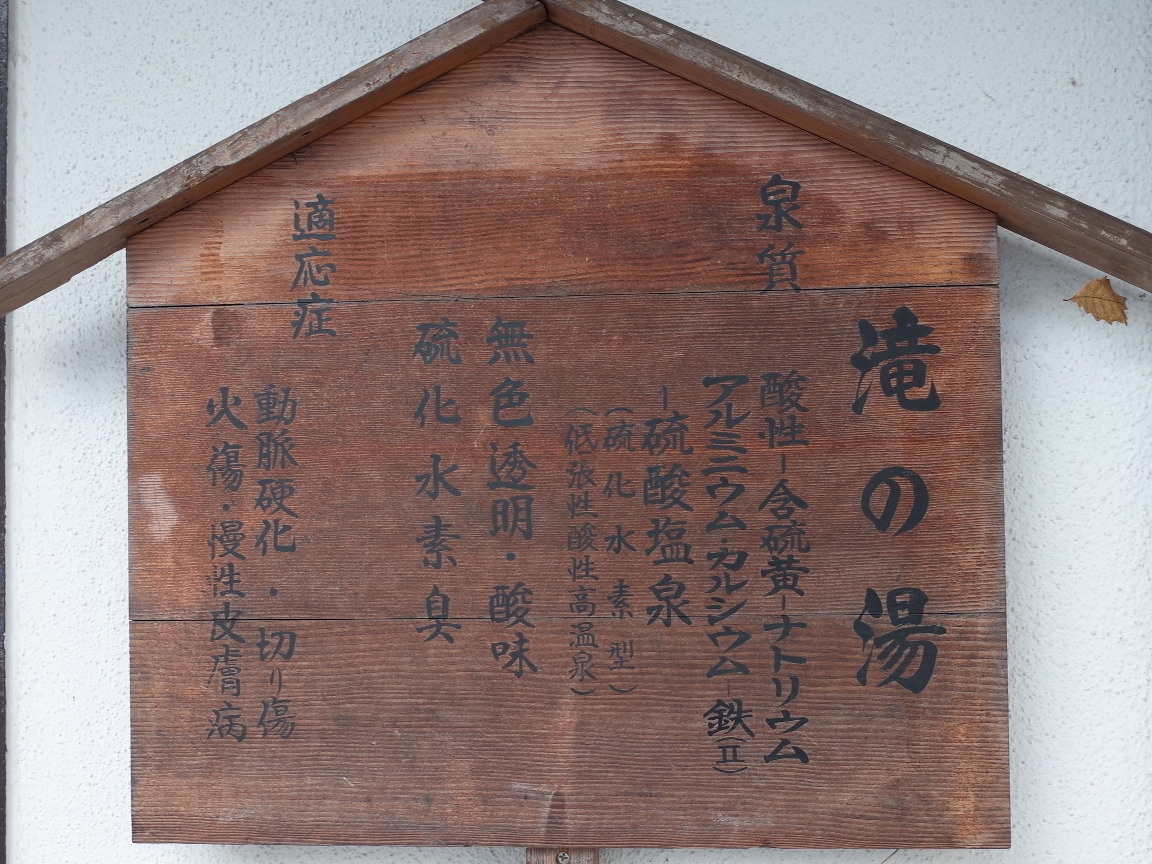 滝の湯
泉質
酸性-含硫黄-ナトリウム
アルミニウム・カルシウム-鉄(Ⅱ)
-硫酸塩泉
(硫化水素型)
(低張性酸性高温泉)
無色透明・酸味
硫化水素臭
適応症
動脈硬化・切り傷
火傷・慢性皮膚病